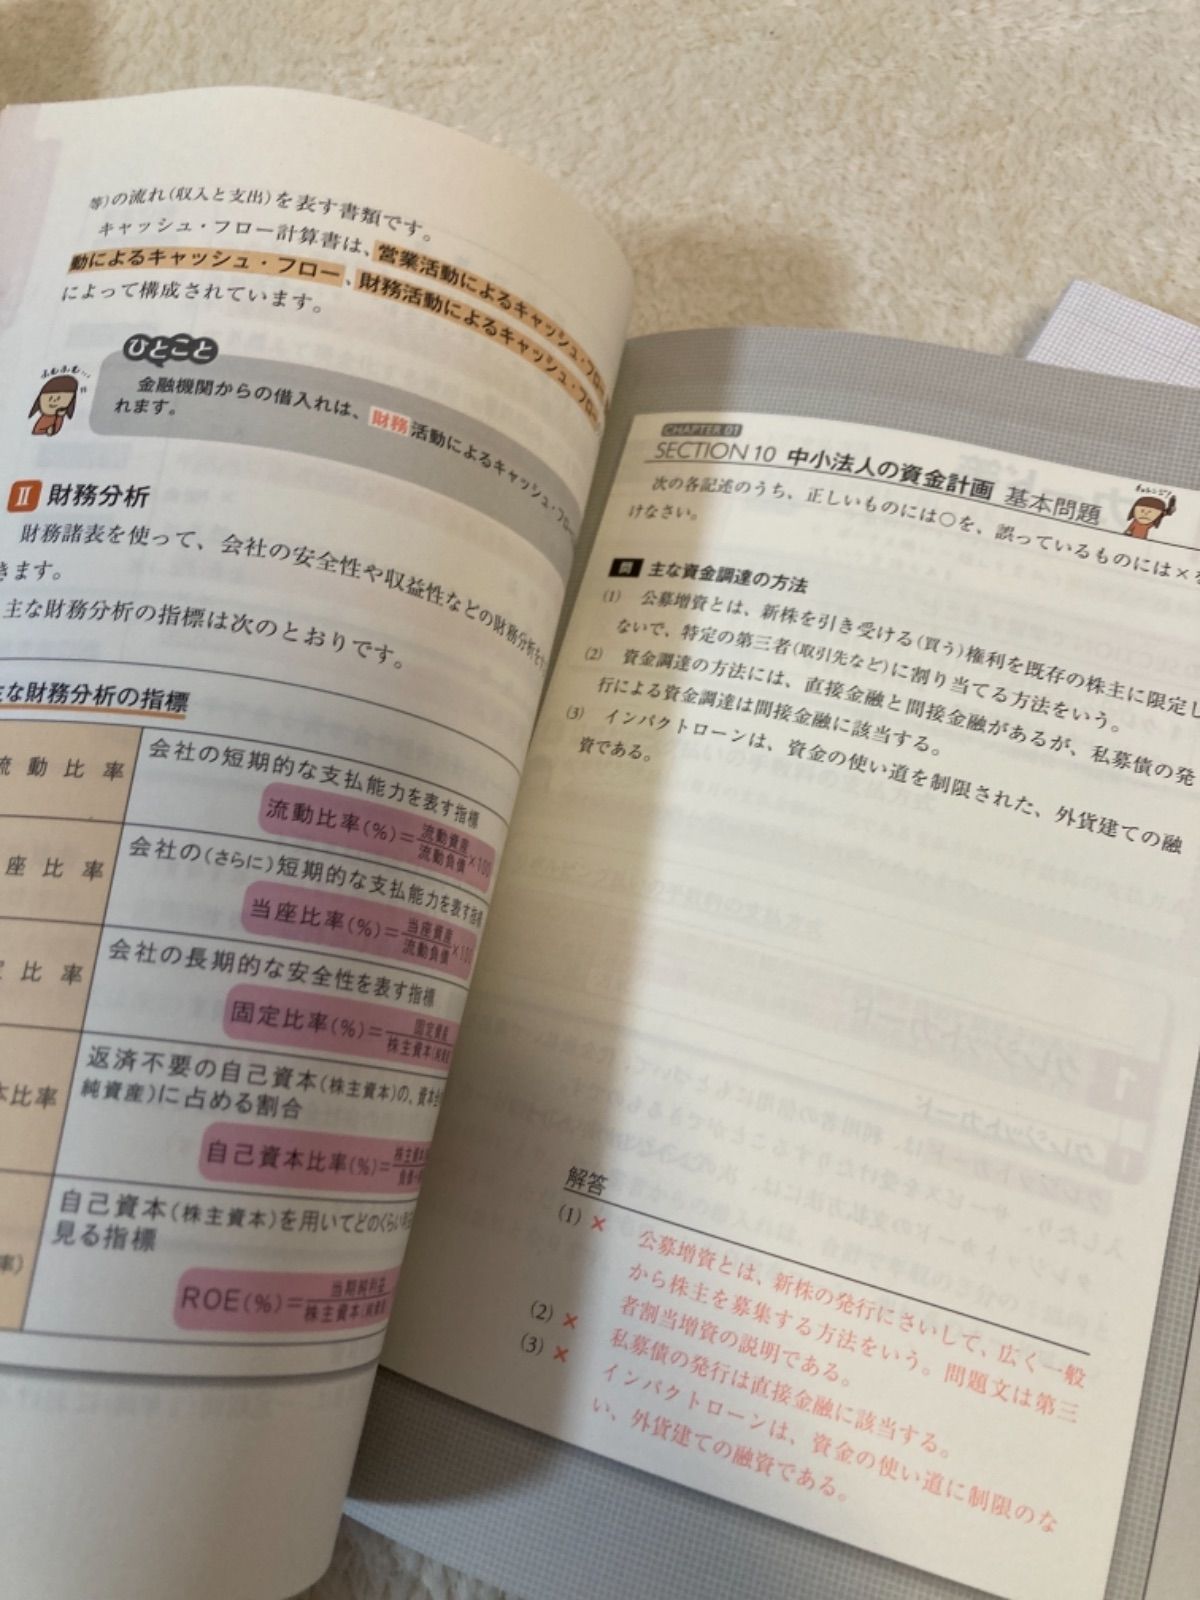 等)の流れ(収入と支出)を表す書類です。
キャッシュ・フロー計算書は、営業活動によるキャッシュ・フロー
動によるキャッシュ・フロー、財務活動によるキャッシュ・フロー
によって構成されています。
ひとこと
ふむふむ…
金融機関からの借入れは、財務活動によるキャッシュ・フロー
れます。
Ⅱ 財務分析
財務諸表を使って、会社の安全性や収益性などの財務分析を
きます。
主な財務分析の指標は次のとおりです。
主な財務分析の指標
流動比率
会社の短期的な支払能力を表す指標
流動比率(%)=流動資産/流動負債×100
座比率
会社の(さらに)短期的な支払能力を表す指標
当座比率(%)=当座資産/流動負債×100
定比率
会社の長期的な安全性を表す指標
固定比率(%)=固定資産/株主資本
本比率
返済不要の自己資本(株主資本)の、資本
純資産)に占める割合
自己資本比率(%)=株主資本
率)
自己資本(株主資本)を用いてどのくらい
見る指標
ROE(%)=当期純利益/株主資本
CHAPTER 01
SECTION 10 中小法人の資金計画 基本問題
チャレンジ!
次の各記述のうち、正しいものには○を、誤っているものには×を
けなさい。
問 主な資金調達の方法
(1) 公募増資とは、新株を引き受ける(買う)権利を既存の株主に限定し
ないで、特定の第三者(取引先など)に割り当てる方法をいう。
(2) 資金調達の方法には、直接金融と間接金融があるが、私募債の発
行による資金調達は間接金融に該当する。
(3) インパクトローンは、資金の使い道を制限された、外貨建ての融
資である。
解答
(1) × 公募増資とは、新株の発行にさいして、広く一般
から株主を募集する方法をいう。問題文は第三
者割当増資の説明である。
(2) × 私募債の発行は直接金融に該当する。
(3) × インパクトローンは、資金の使い道に制限のな
い、外貨建ての融資である。